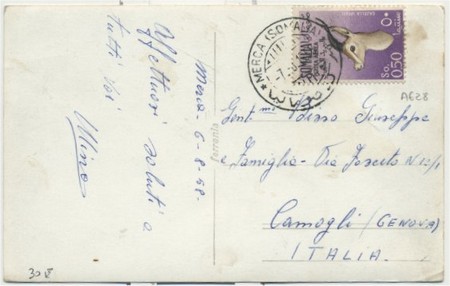 Merca - 6-8-58 -
Affettuosi saluti a
tutti voi
Mino
ferrania
MERCA (SOMALIA)
SOMALIA
So. 0,50
A628
Gent.mo Giuseppe
e Famiglia - Via N. 12/1
Camogli (GENOVA)
ITALIA.
30 €